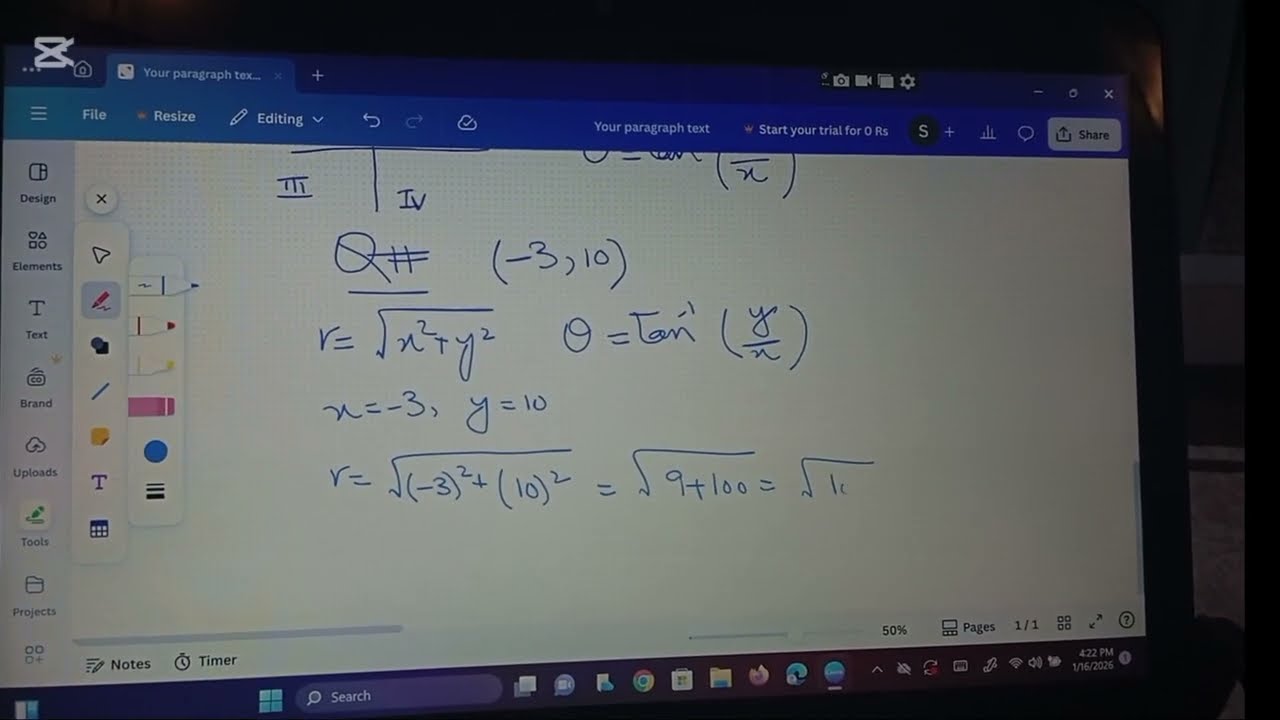 Your paragraph tex...
File
Resize
Editing
Your paragraph text
Start your trial for 0 Rs
S
Share
Design
Elements
Text
Brand
Uploads
Tools
Projects
θ = tan⁻¹ (—/x)
III
IV
Q# (-3, 10)
r = √x²+y² θ = tan⁻¹ (y/x)
x = -3, y = 10
r = √(-3)²+(10)² = √9+100 = √1
50%
Pages
1/1
Notes
Timer
Search
4:22 PM
1/16/2026